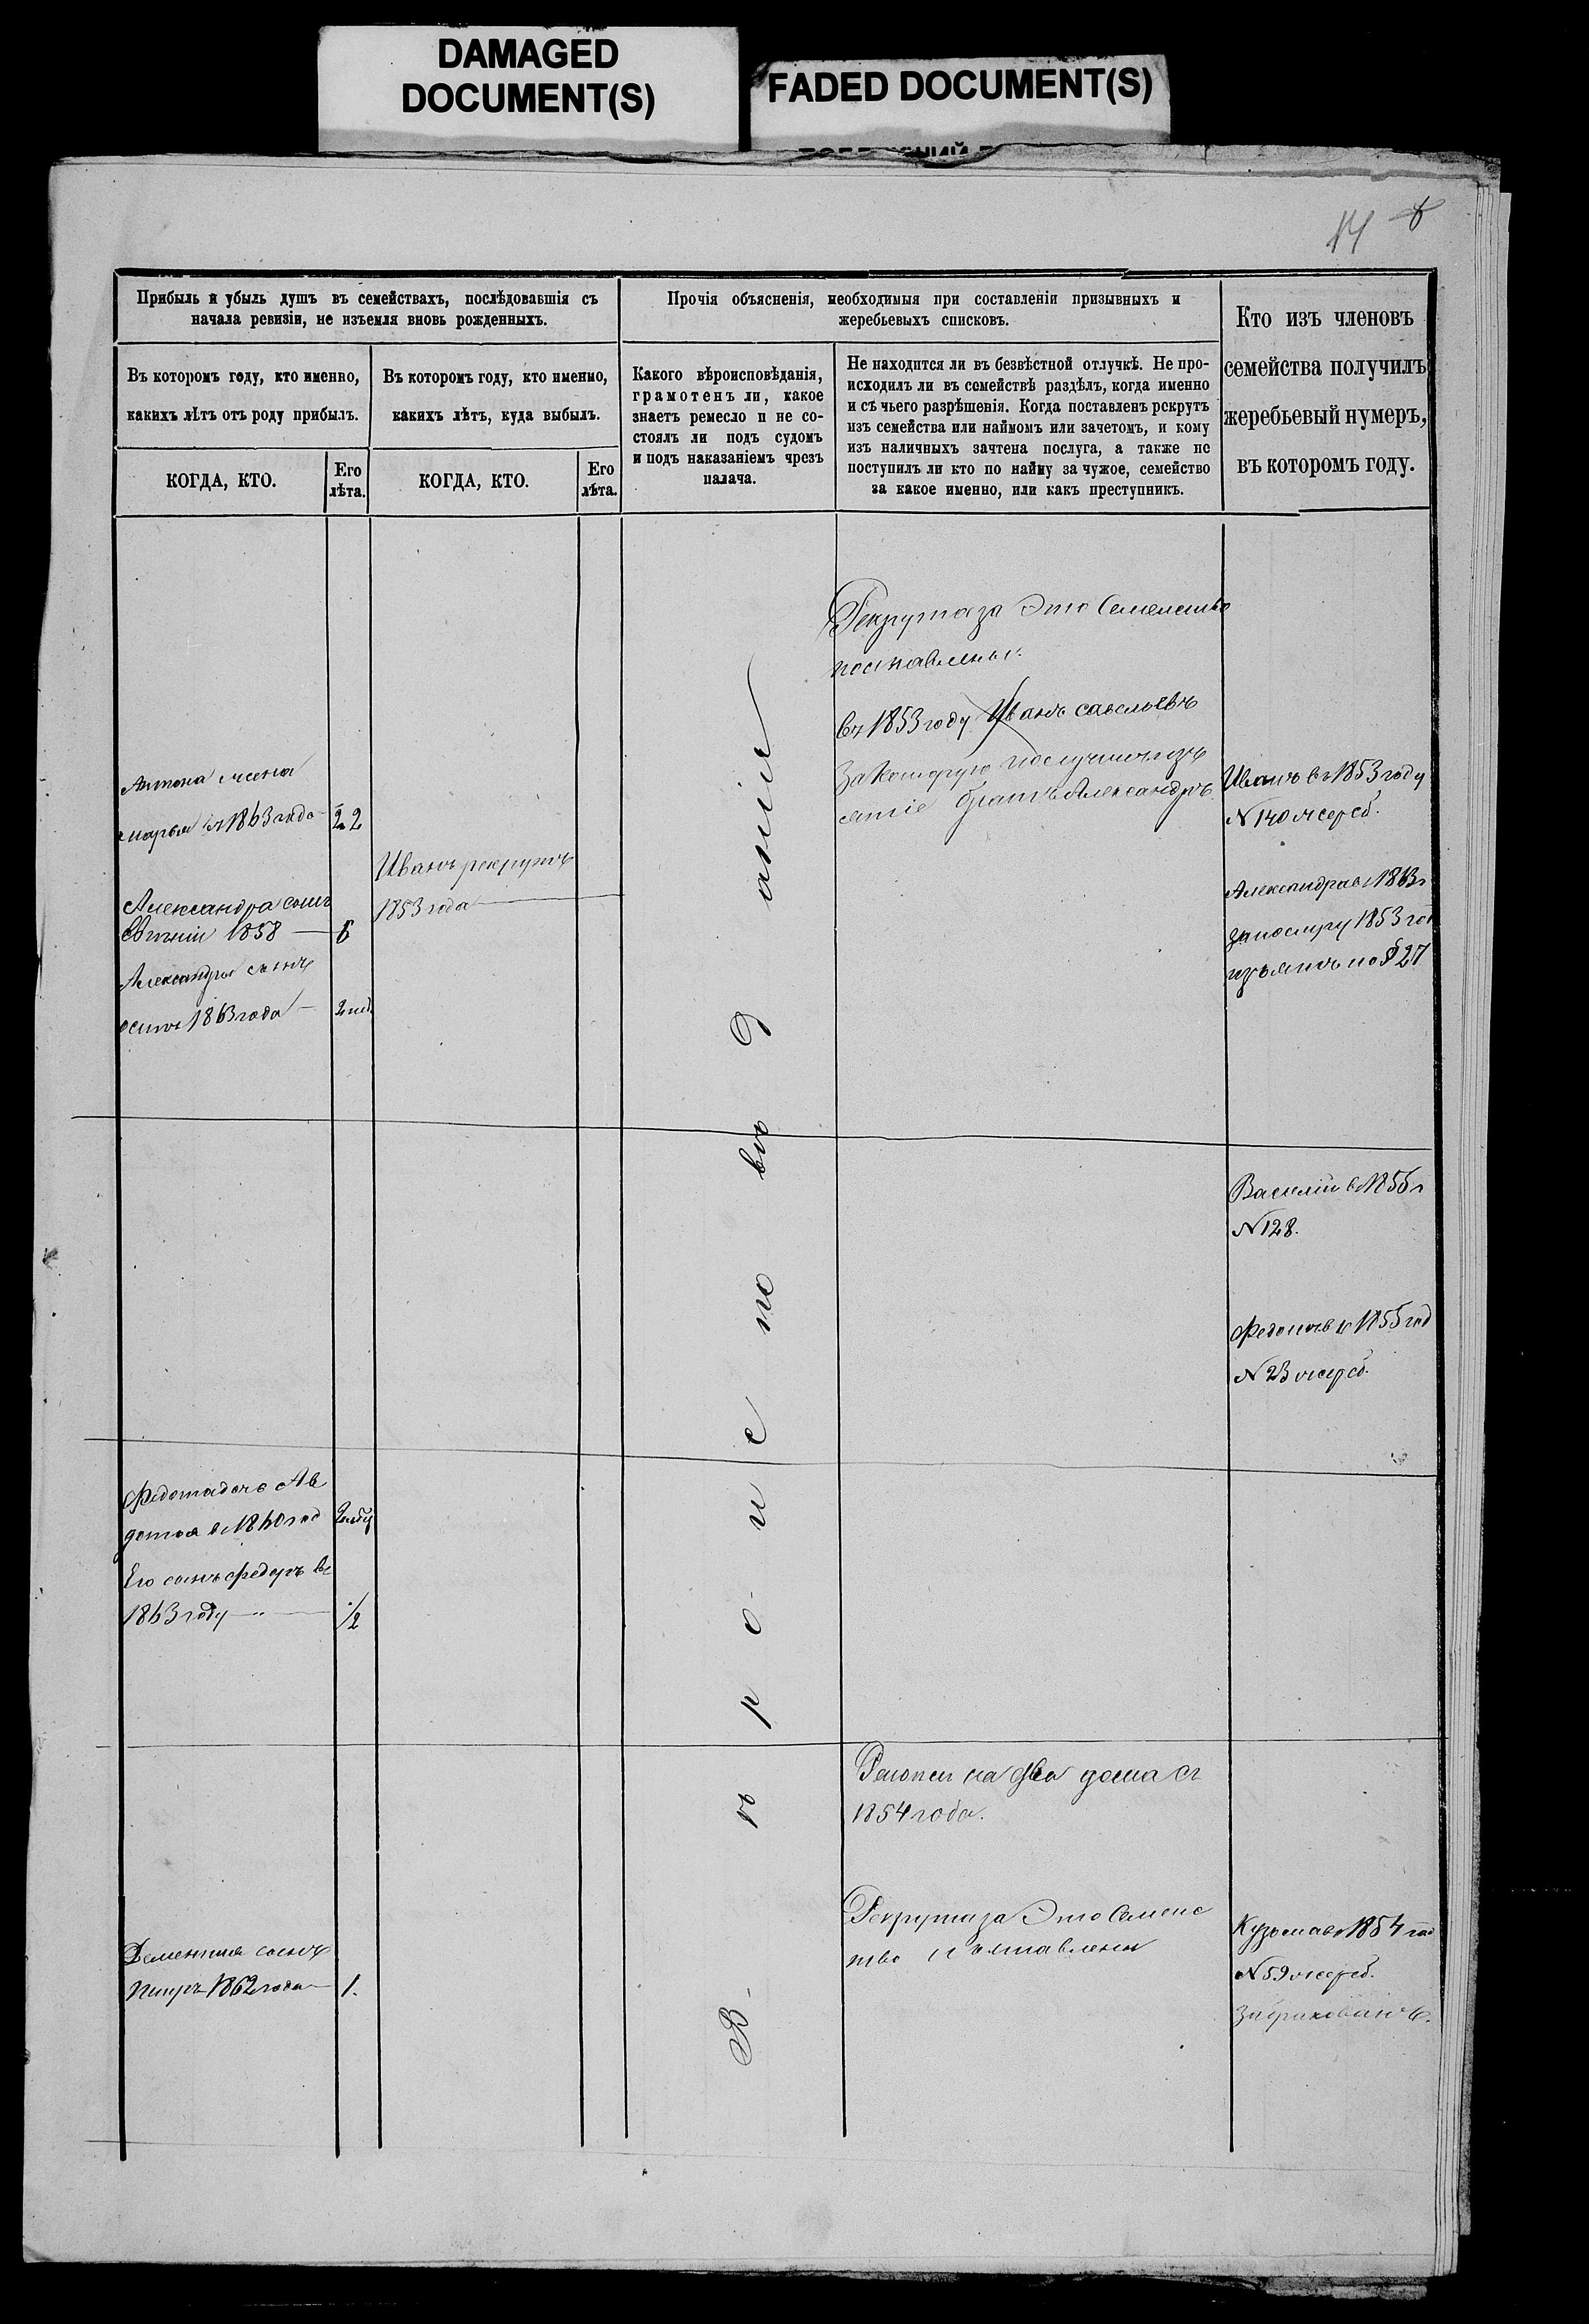 DAMAGED
DOCUMENT(S)
FADED DOCUMENT(S)
14
Прибыль и убыль душъ въ семействахъ, послѣдовавшія съ
начала ревизіи, не изъемля вновь рожденныхъ.
Въ которомъ году, кто именно,
какихъ лѣтъ отъ роду прибылъ.
КОГДА, КТО.
Его
лѣта.
Въ которомъ году, кто именно,
какихъ лѣтъ, куда выбылъ.
КОГДА, КТО.
Его
лѣта.
Прочія объясненія, необходимыя при составленіи призывныхъ и
жеребьевыхъ списковъ.
Какого вѣроисповѣданія,
грамотенъ ли, какое
знаетъ ремесло и не со-
стоялъ ли подъ судомъ
и подъ наказаніемъ чрезъ
палача.
Не находится ли въ безвѣстной отлучкѣ. Не про-
исходилъ ли въ семействѣ раздѣлъ, когда именно
и съ чьего разрѣшенія. Когда поставленъ рекрутъ
изъ семейства или наймомъ или зачетомъ, и кому
изъ наличныхъ зачтена послуга, а также не
поступилъ ли кто по найму за чужое, семейство
за какое именно, или какъ преступникъ.
Кто изъ членовъ
семейства получилъ
жеребьевый нумеръ,
въ которомъ году.
Антона жена
марья въ 1863 года 22
Александра сынъ
Евгеній 1858 — 6
Александра сынъ
осипъ 1863 года —
Иванъ рекрутъ
1853 года
Рекрута за Это Семейство
поставлены
въ 1853 году Иванъ савельевъ
За которую послугу изъ
ятіе братъ Александръ
Иванъ въ 1853 году
N 140 жереб.
Александра в 1863 г
за послугу 1853 го
изъятъ по § 27
Василій в 1855 г
N 128.
в 1855 год
N 23 жереб.
Федота дочь Ав
дотья в 1860 год
Его сынъ федоръ въ
1863 году — 1/2
на два дома съ
1854 года.
Рекрута за Это Семейс
тво поставлены
Дементія сынъ
Петръ 1862 года — 1.
Кузьма в 1854 год
N 59 жереб.
Забракованъ.
В- ъ р о- и с по въ д аніе